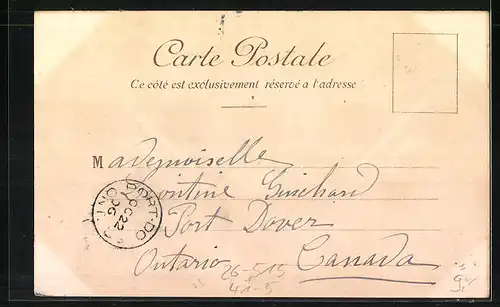 Carte Postale
Ce côté est exclusivement réservé a l'adresse
Mademoiselle
Guichard
PORT·DO
OC 22
06
ONT
Port Dover
Ontario
Canada
26-5.15
41-5